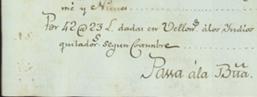 me y Nueve
Por 42@23 L. dadas en Vellon.s á los Yndios
quitados segun Costumbre
Passa á la Bũa.